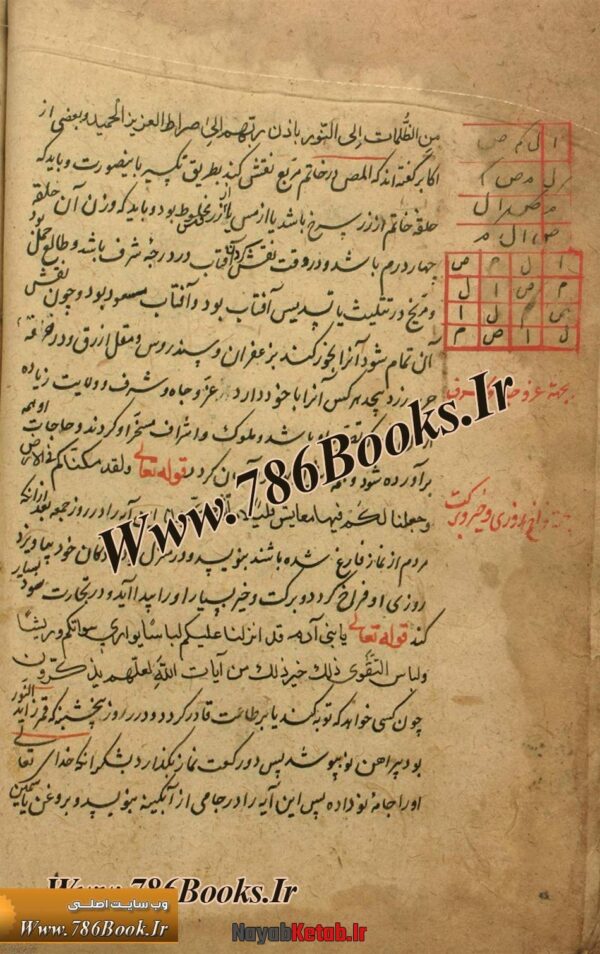 من الظلمات إلى النور باذن ربهم إلى صراط العزيز الحميد و بعضی از
اکابر گفته اند که المص در خاتم مربع نقش کند بطریق تکسیر باینصورت و باید که
حلقه خاتم از زر سرخ باشد یا از مس یا از زر مخلوط بود و باید که وزن آن حلقه
چهار درم باشد و در وقت نقش کردن آفتاب در درجهٔ شرف باشد و طالع حمل بود
و مریخ در تثلیث یا تسدیس آفتاب بود و آفتاب مسعود بود و چون نقش
آن تمام شود آنرا بخور کند بزعفران و سندروس و مقل ازرق و در خرقهٔ
هر کس آنرا با خود دارد عز و جاه و شرف و ولایت زیاده
باشد و ملوک و اشراف مسخر او گردند و حاجات او همه
برآورده شود قوله تعالی ولقد مکناکم فی الارض
وجعلنا لکم فیها معایش در روز جمعه بعد از آنکه
مردم از نماز فارغ شده باشند بنویسد و در منزل خود بیاویزد
روزی او فراخ گردد و برکت و خیر بسیار او را پیدا آید و در تجارت سود بسیار
کند قوله تعالی یا بنی آدم قد انزلنا علیکم لباسا یواری سواتکم وریشا
ولباس التقوی ذلک خیر ذلک من آیات الله لعلهم یذکرون
چون کسی خواهد که توبه کند یا بر طاعت قادر گردد و در روز پنجشنبه که قمر زاید النور
بود پیراهن نو بپوشد پس دو رکعت نماز بگذارد بشکرانه که خدای تعالی
او را جامهٔ نو داده پس این آیه را در جامی از آبگینه بنویسد و بروغن یاسمین
ا ل م ص
ل م ص ا
م ص ا ل
ص ا ل م
ا ل م ص
م ص ا ل
ل ا ص م
بجهة عز و
روزی و خیر و برکت
Www.786Books.Ir
Www.786Books.Ir
وب سایت اصلی
Www.786Book.Ir
NayabKetab.Ir